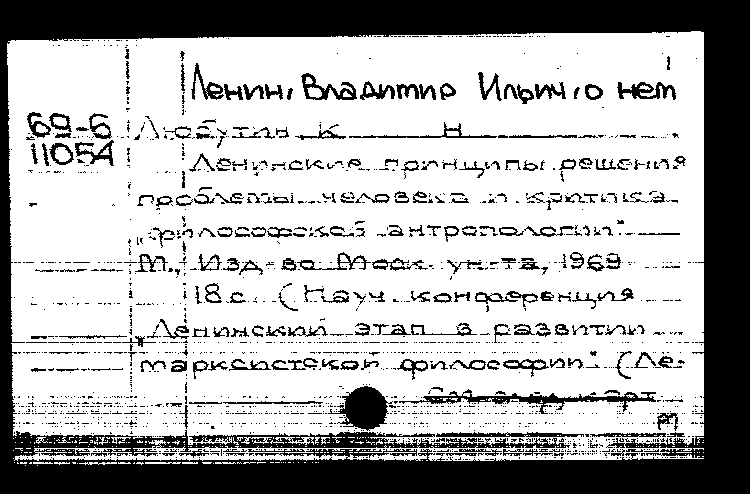 1
Ленин, Владимир Ильич, о нем
69-6 Любутин К Н
11054 Ленинские принципы решения
проблемы человека и критика
"философской антропологии".
М., Изд-во Моск. ун-та, 1969
18 с. (Науч. конференция
"Ленинский этап в развитии
марксистской философии". (Ле-
См. след. карт